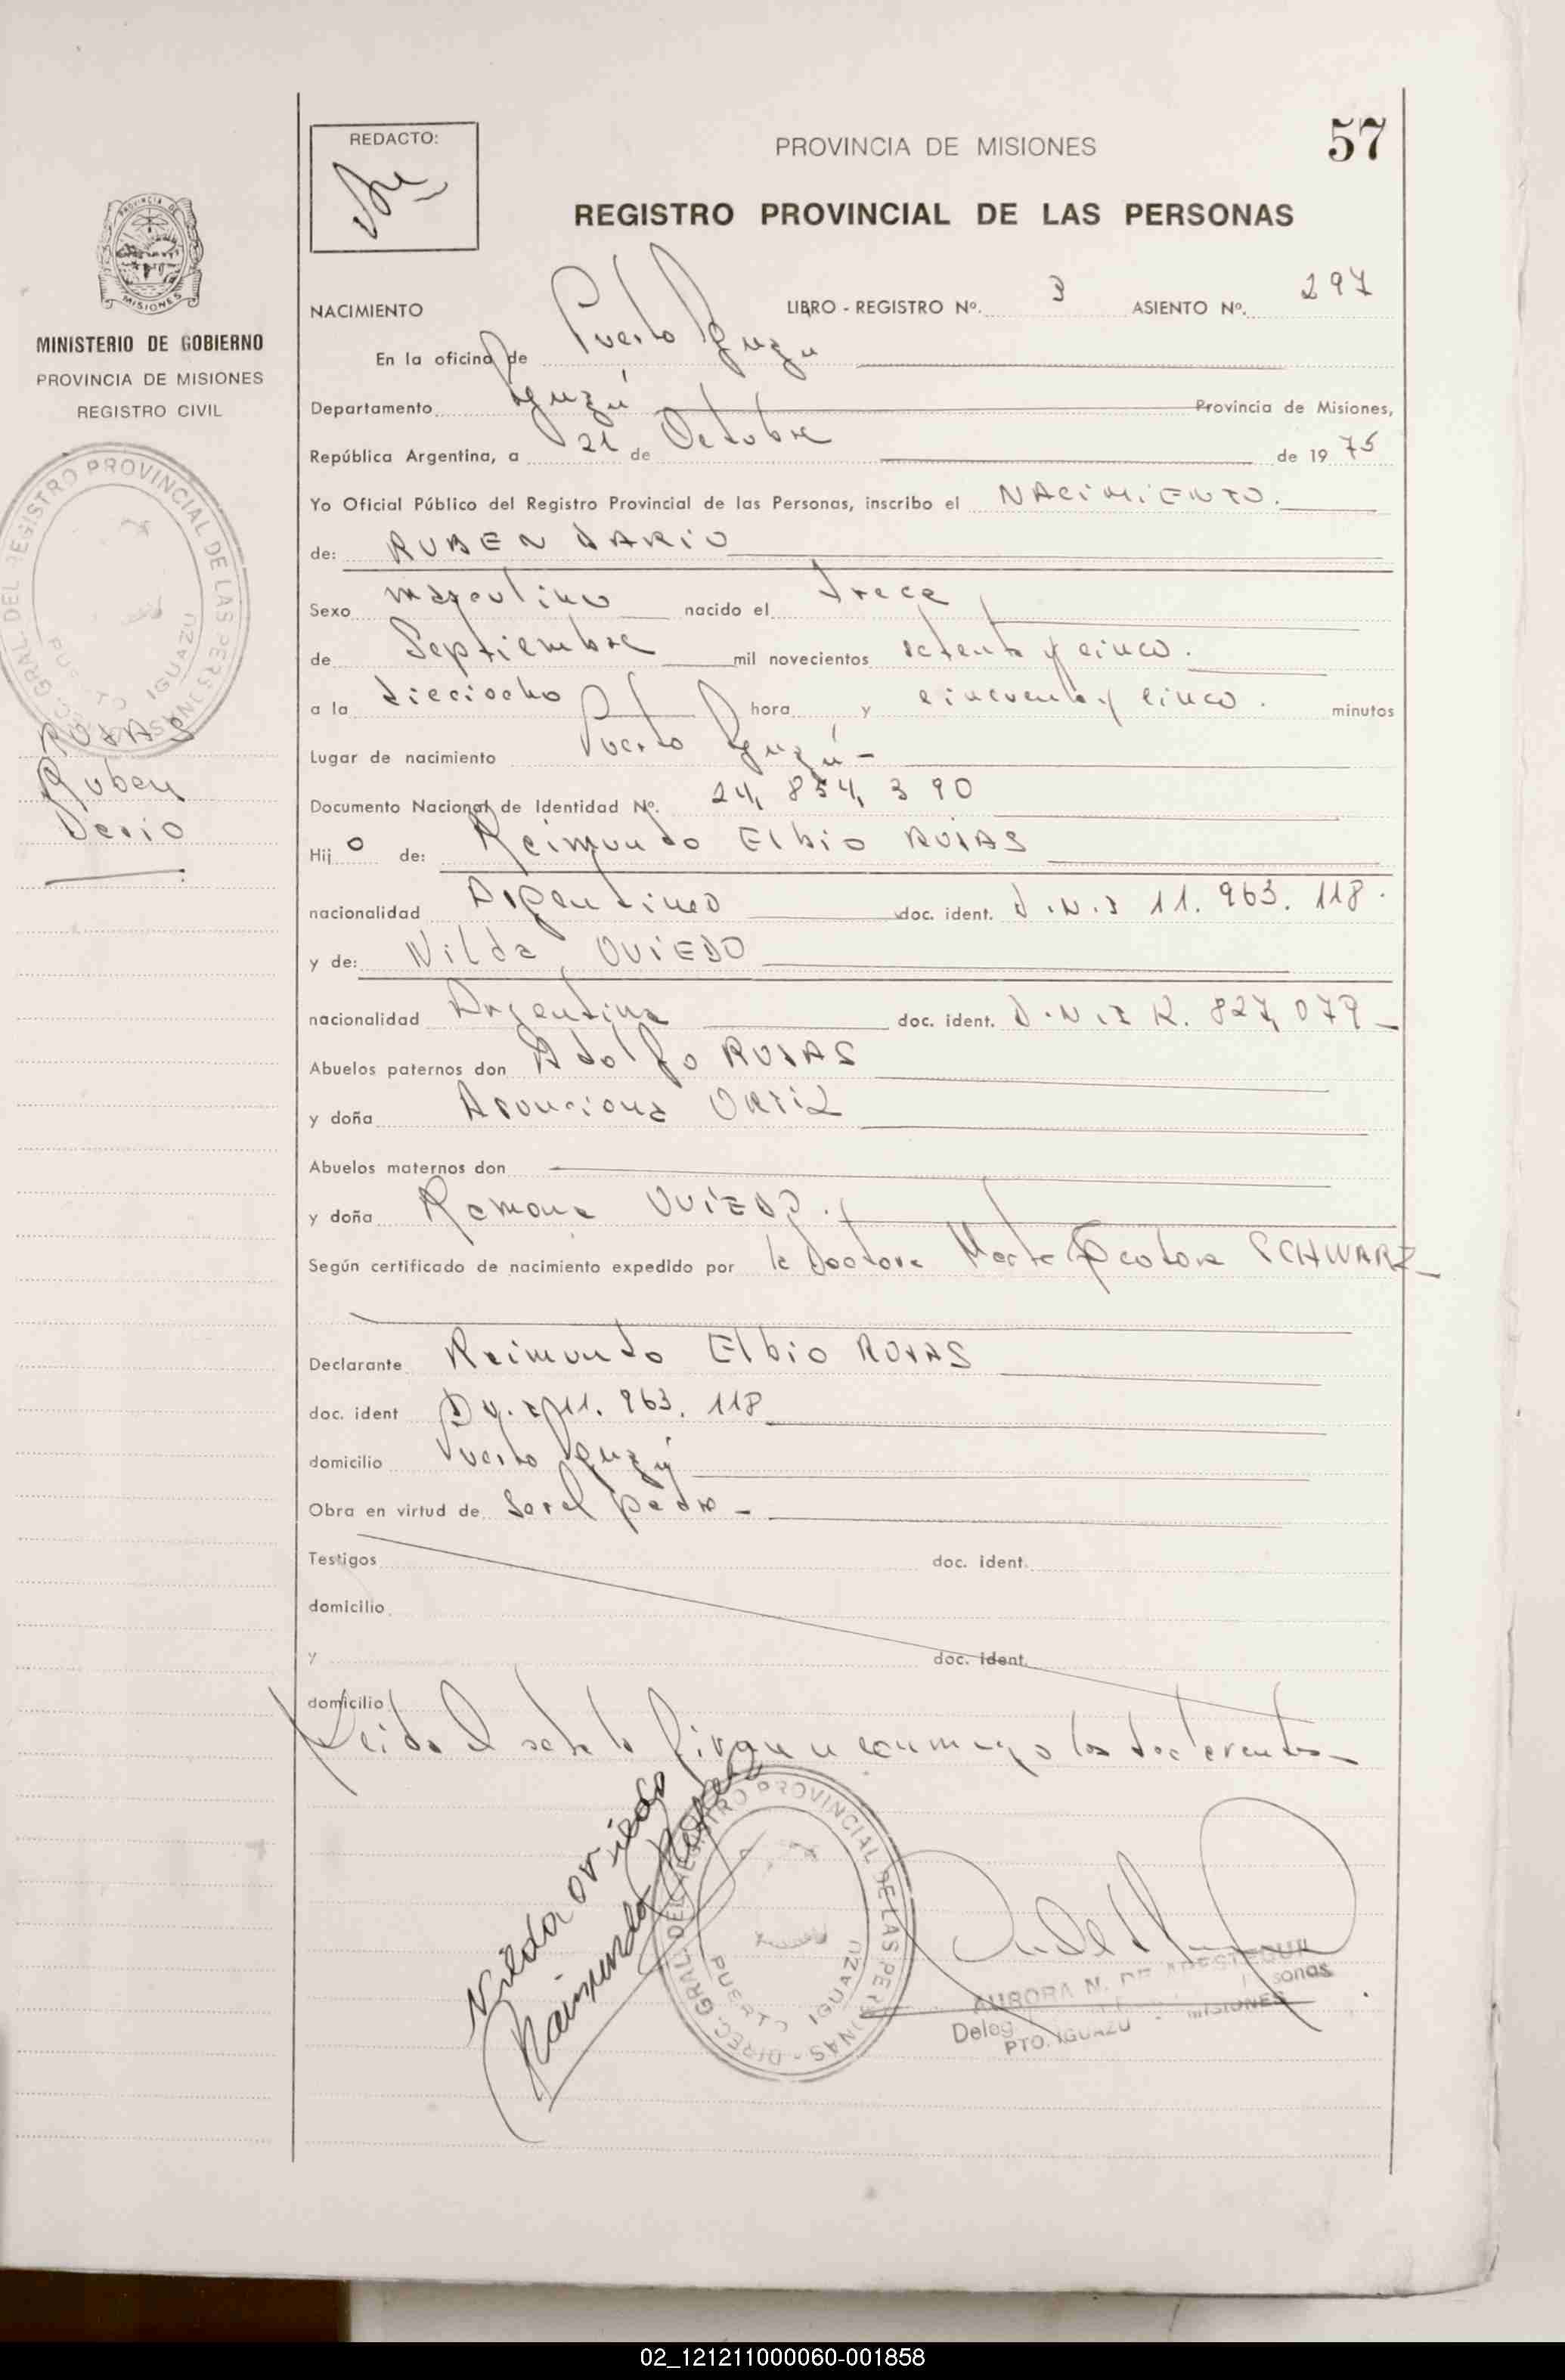 REDACTO:
PROVINCIA DE MISIONES
57
REGISTRO PROVINCIAL DE LAS PERSONAS
PROVINCIA DE
MISIONES
MINISTERIO DE GOBIERNO
PROVINCIA DE MISIONES
REGISTRO CIVIL
DIREC. GRAL. DEL REGISTRO PROVINCIAL DE LAS PERSONAS
PUERTO IGUAZU
ROJAS
Ruben
Dario
NACIMIENTO LIBRO - REGISTRO Nº. 3 ASIENTO Nº. 297
En la oficina de Puerto Iguazu
Departamento Iguazú Provincia de Misiones,
República Argentina, a 21 de Octubre de 1975
Yo Oficial Público del Registro Provincial de las Personas, inscribo el NACIMIENTO.
de: RUBEN DARIO
Sexo masculino nacido el trece
de Septiembre mil novecientos setenta y cinco.
a la dieciocho hora y cincuenta y cinco. minutos
Lugar de nacimiento Puerto Iguazú -
Documento Nacional de Identidad Nº. 24, 854, 390
Hijo de: Reimundo Elbio ROJAS
nacionalidad Argentino doc. ident. D.N.I 11. 963. 118.
y de: Nilda OVIEDO
nacionalidad Argentina doc. ident. D.N.I 827, 079 -
Abuelos paternos don Adolfo ROJAS
y doña Asunciona ORTIZ
Abuelos maternos don
y doña Ramona OVIEDO.
Según certificado de nacimiento expedido por la Doctora Marta Teodora SCHWARZ -
Declarante Reimundo Elbio ROJAS
doc. ident D.N.I 11. 963. 118
domicilio Puerto Iguazú
Obra en virtud de ser el padre -
Testigos doc. ident.
domicilio
y doc. ident.
domicilio
Leida el acta la firman conmigo los declarantes -
Nilda oviedo
Raimundo Rojas
DIREC. GRAL. DEL REGISTRO PROVINCIAL DE LAS PERSONAS
PUERTO IGUAZU
AURORA N. DE
Deleg. sonas
PTO. IGUAZU - MISIONES
02_121211000060-001858